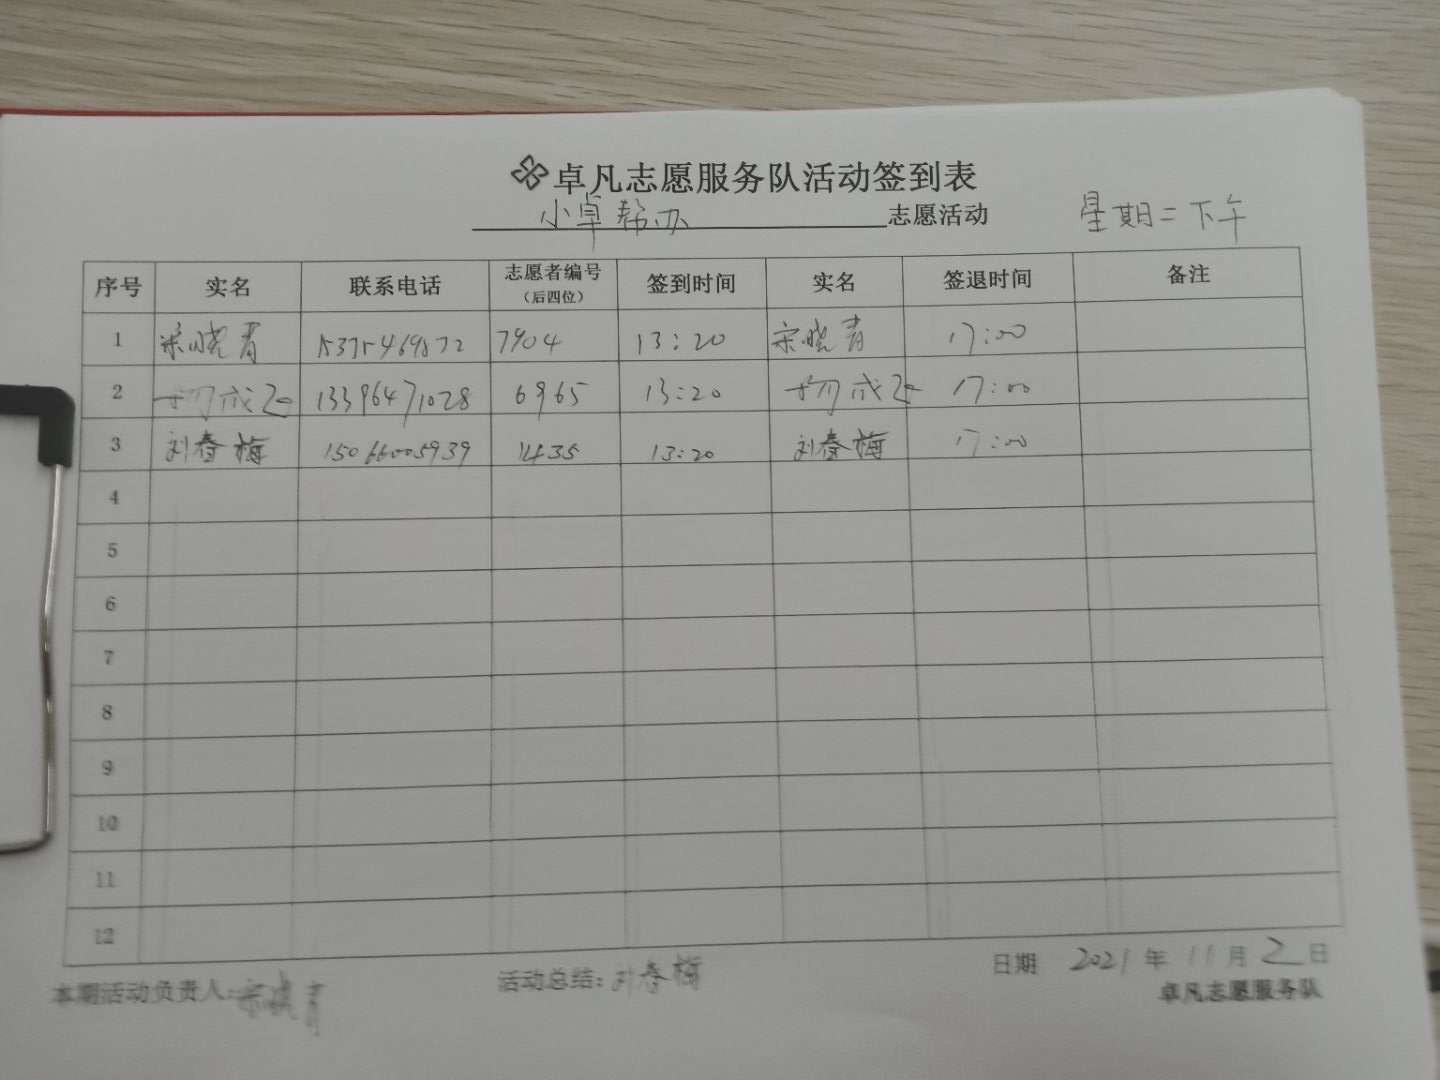 卓凡志愿服务队活动签到表
小卓帮办 志愿活动 星期二下午
序号 实名 联系电话 志愿者编号（后四位） 签到时间 实名 签退时间 备注
1 宋晓青 15375469872 7904 13:20 宋晓青 17:00
2 13396471028 6965 13:20 17:00
3 刘春梅 15066005939 1435 13:20 刘春梅 17:00
4
5
6
7
8
9
10
11
12
本期活动负责人:宋晓青 活动总结:刘春梅 日期 2021年11月2日
卓凡志愿服务队